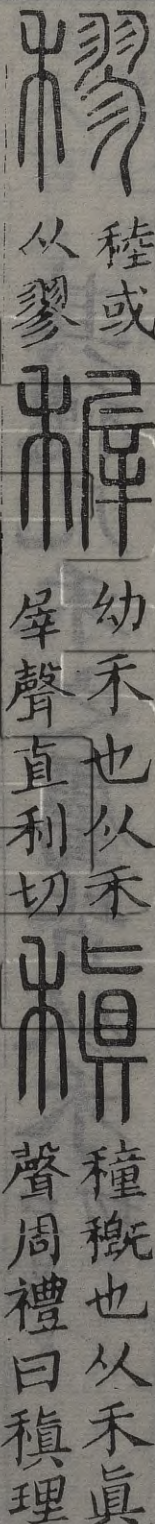 穋
稑或
从翏
稺
幼禾也从禾
屖聲直利切
稹
穜穊也从禾眞
聲周禮曰稹理